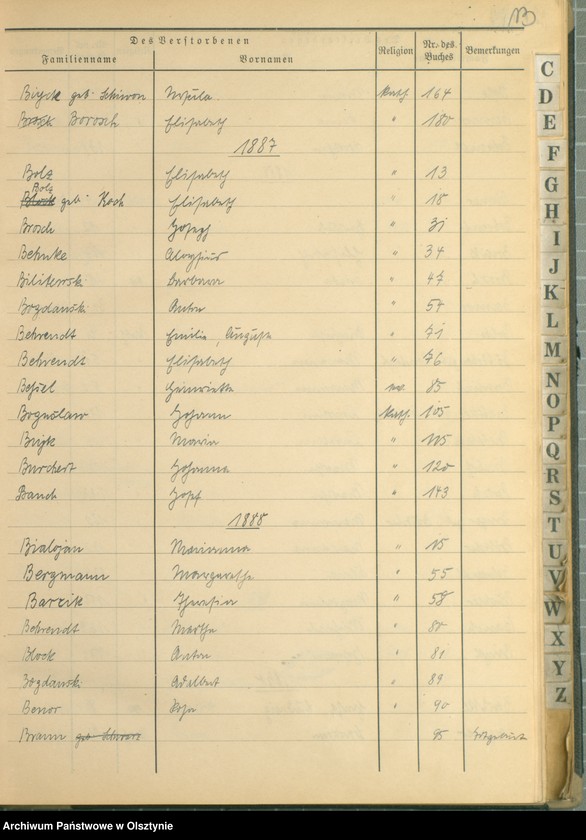 13
Des Verstorbenen
Familienname Vornamen Religion Nr. des Buches Bemerkungen
geb. Ursula. kath. 164
Borosch Elisabeth " 180
1887
Bolz Elisabeth " 13
Bolz geb. Koch Elisabeth " 18
Brosch Joseph " 31
Behnke Aloysius " 34
Bilitewski Barbara " 47
Bogdanski Anton " 54
Behrendt Emilie, Auguste " 71
Behrendt Elisabeth " 76
Henriette ev. 85
Boguslaw Johann kath. 105
Maria " 115
Burchert Johanna " 120
Banch Josef " 143
1888
Bialojan Marianna " 15
Bergmann Margarethe " 55
Barzik Theresia " 58
Behrendt Martha " 80
Block Anton " 81
Bogdanski Adalbert " 89
Benor Rosa " 90
Braun 95 Totgeburt
C
D
E
F
G
H
I
J
K
L
M
N
O
P
Q
R
S
T
U
V
W
X
Y
Z
Archiwum Państwowe w Olsztynie